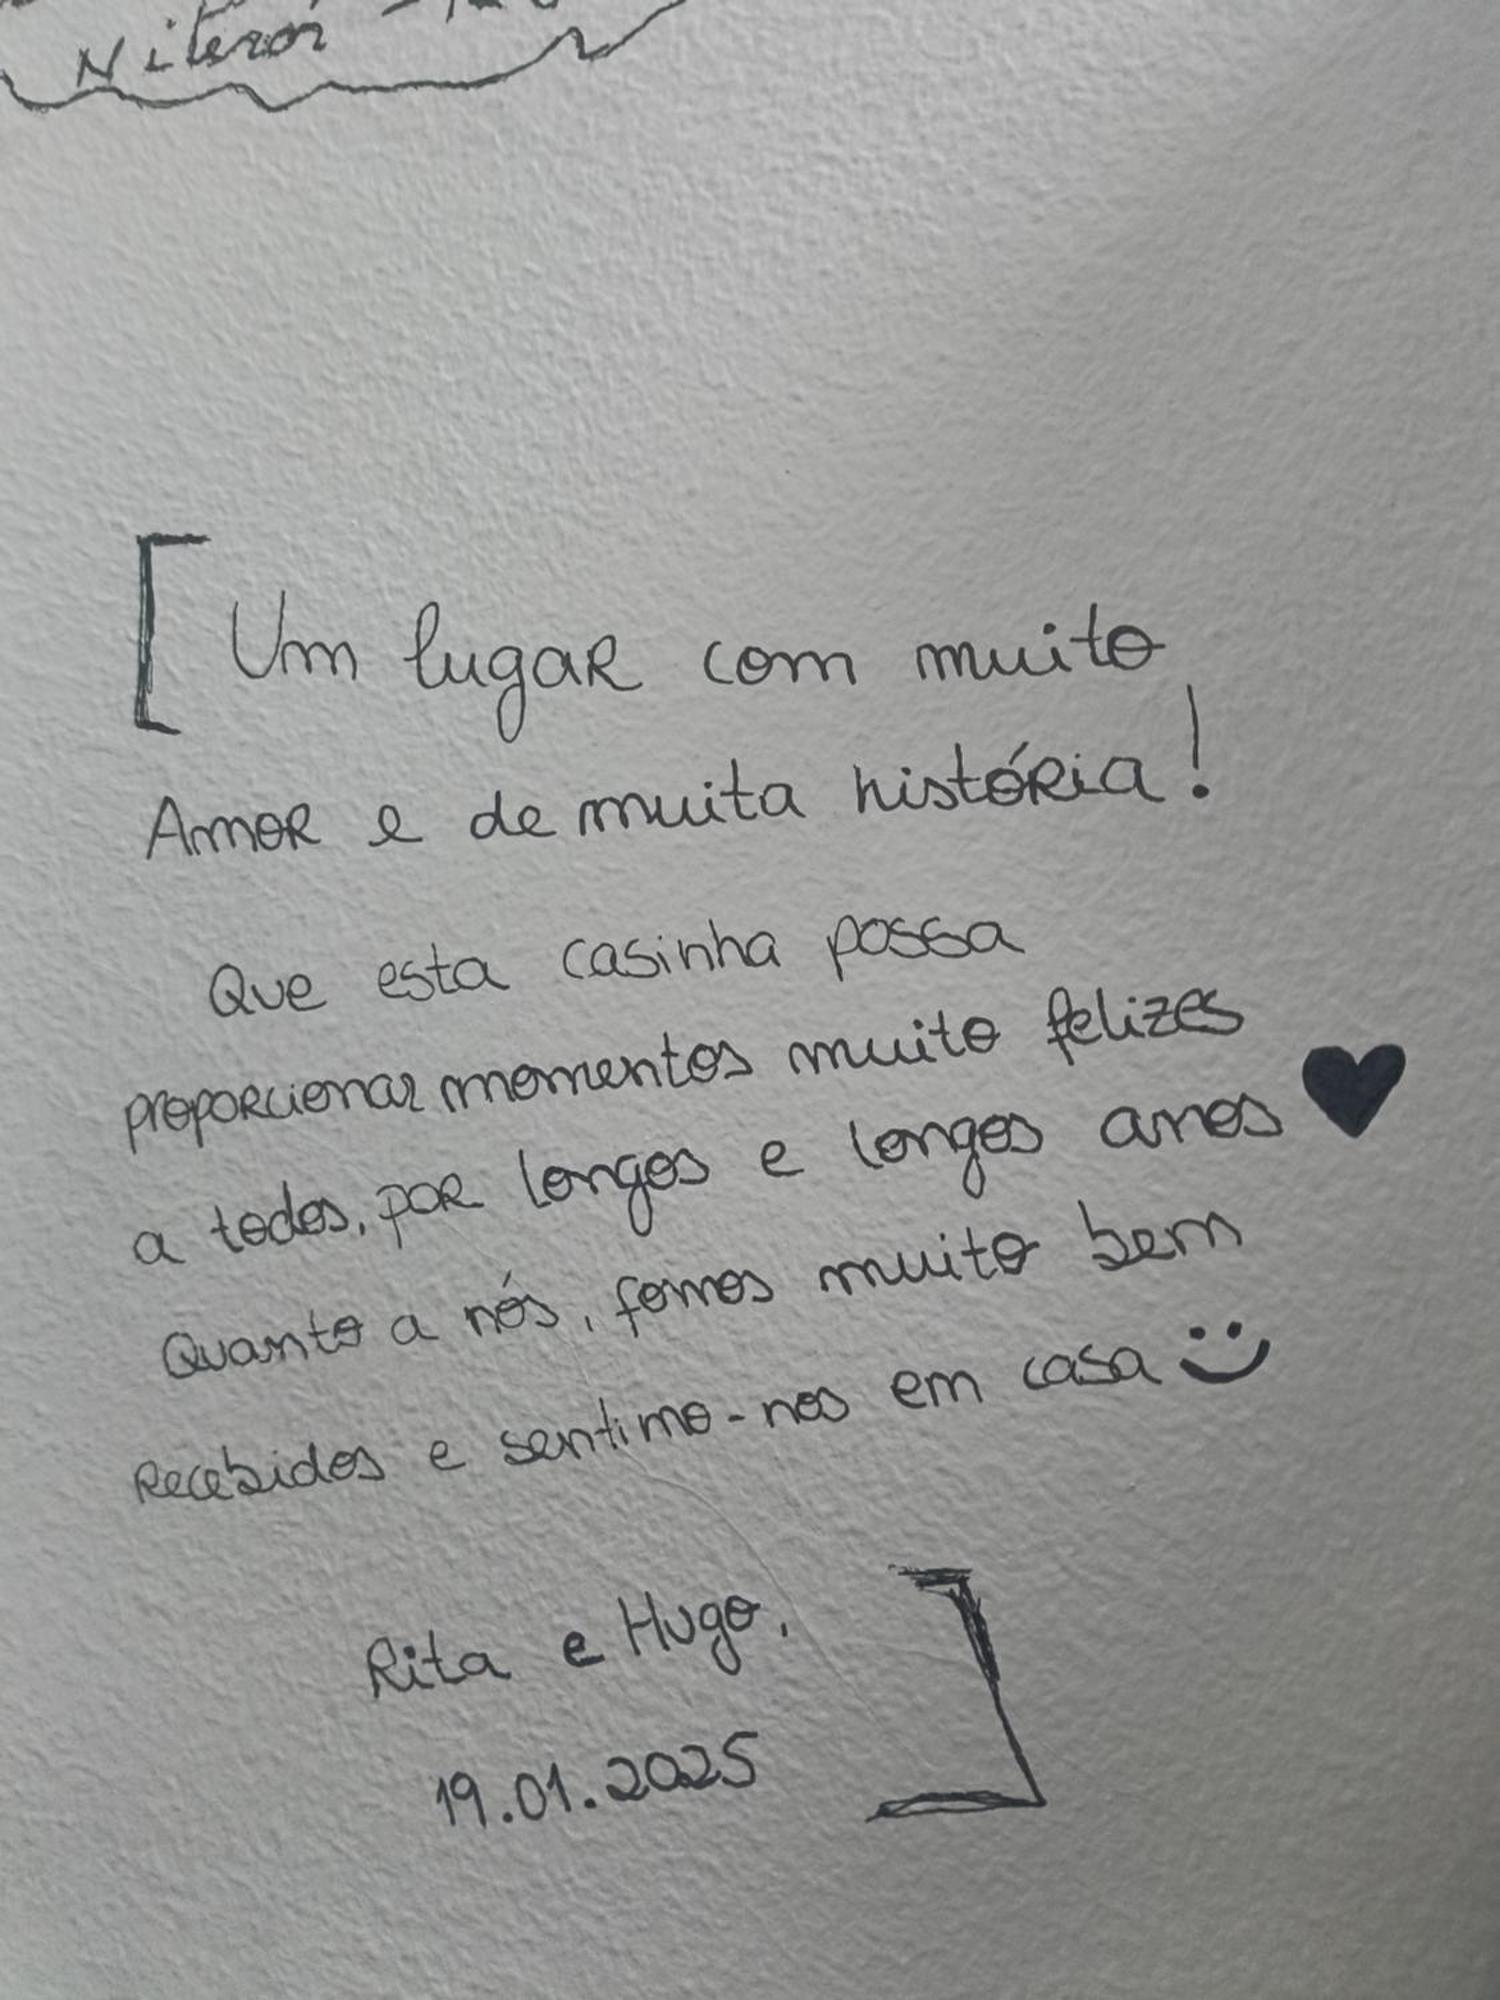 Niterói
[Um lugar com muito
Amor e de muita história!
Que esta casinha possa
proporcionar momentos muito felizes
a todos, por longos e longos anos ♥
Quanto a nós, fomos muito bem
recebidos e sentimo-nos em casa :)
Rita e Hugo,
19.01.2025]